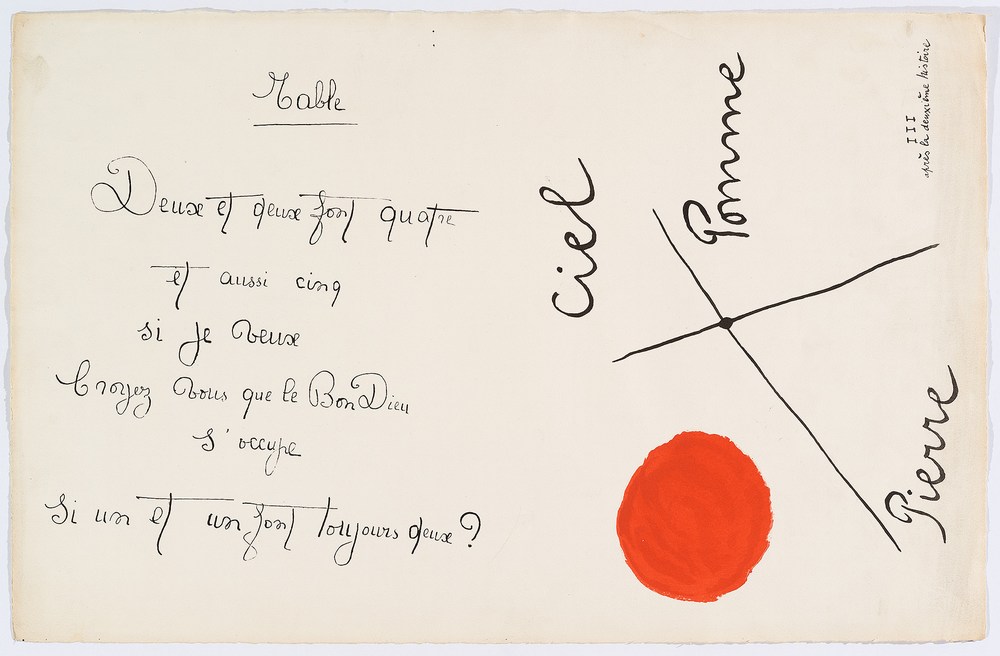 Table
Deux et deux font quatre
et aussi cinq
si je veux
Croyez vous que le Bon Dieu
s'occupe
si un et un font toujours deux ?
Ciel
Pomme
Pierre
III
après la deuxième histoire